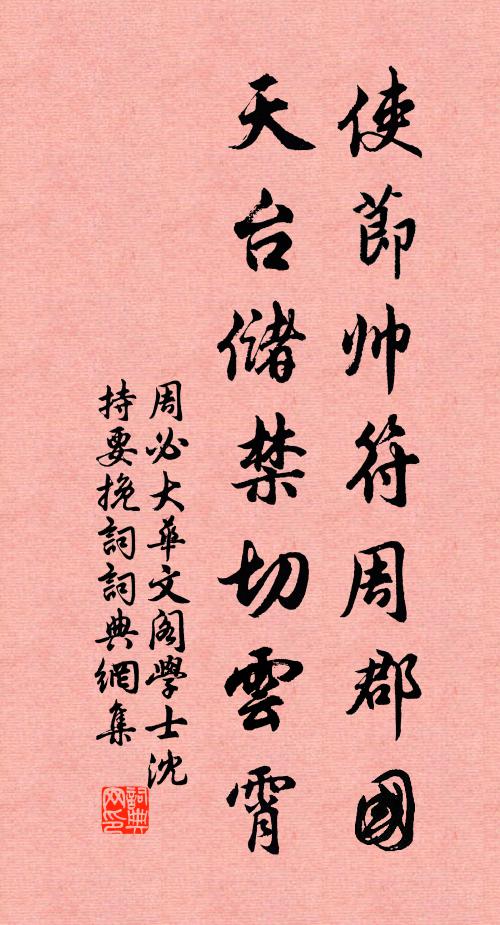 使節帅符周郡國
天台儲禁切雲霄
周必大華文阁學士沈
持要挽詞詞典網集
詞典
网印